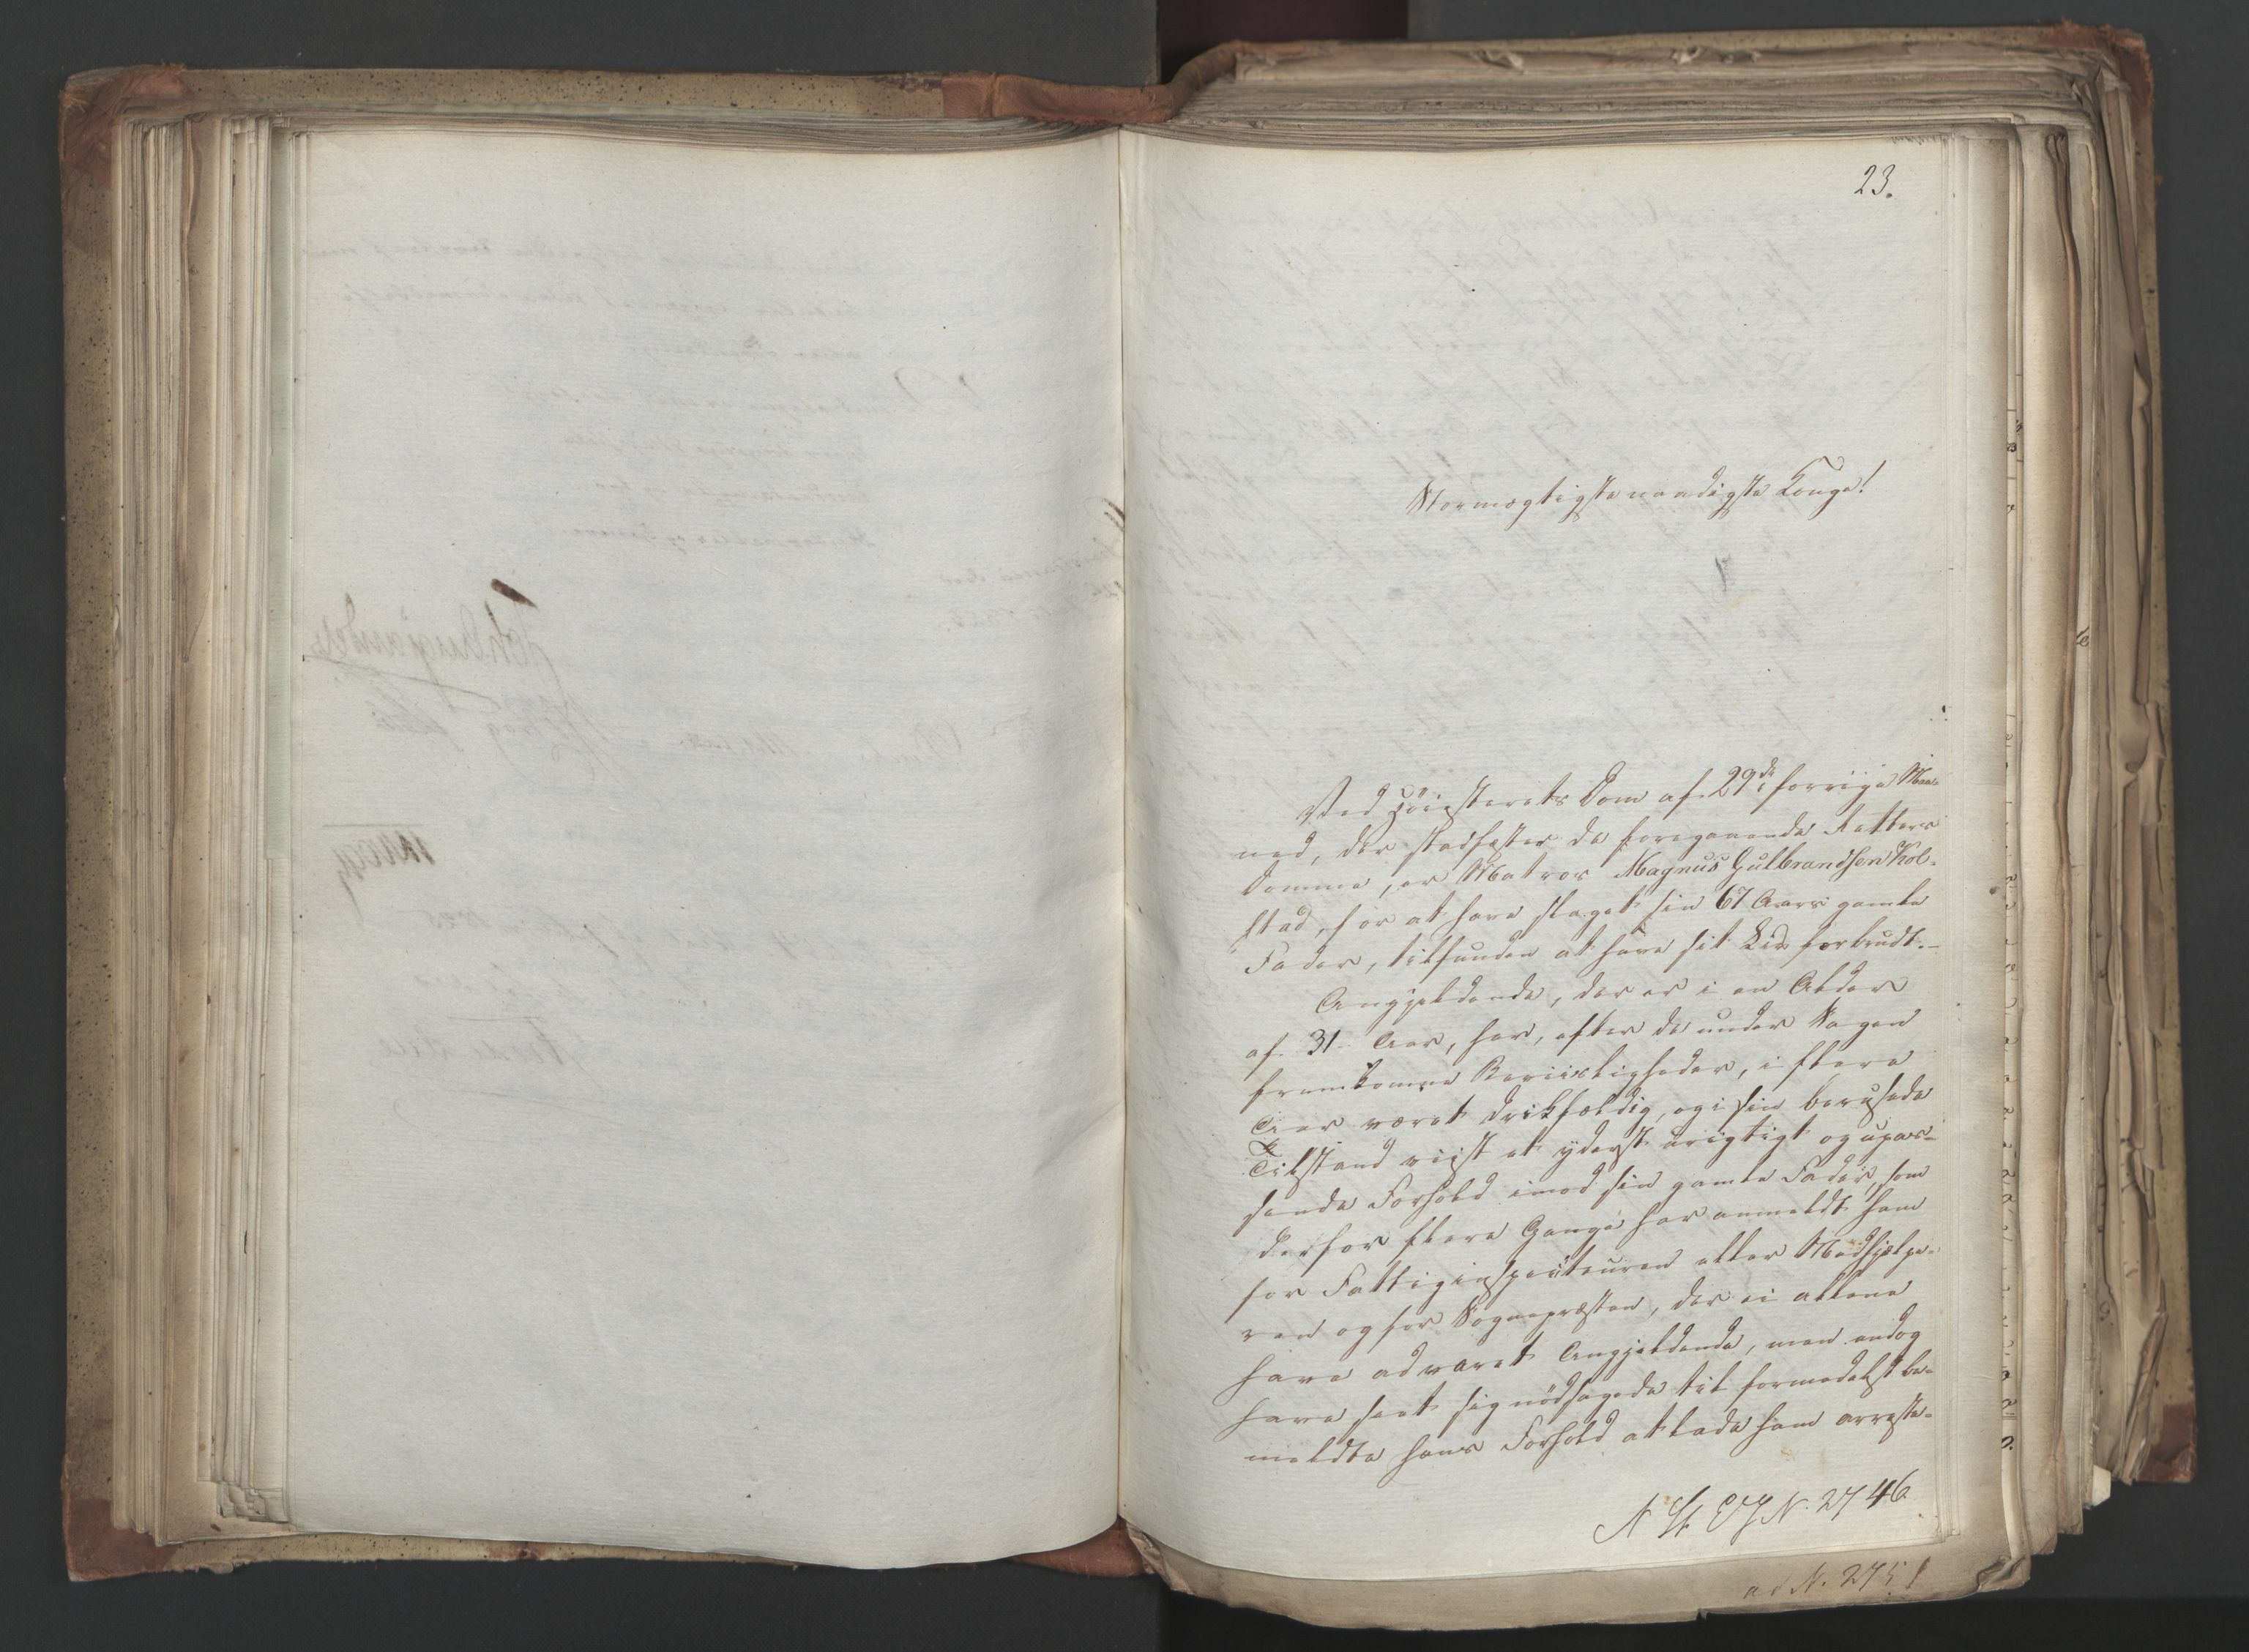 23.
Stormægtigste naadigste Konge!
Ved Höiesterets Dom af 29de forrige Maa-
ned, der stadfæster de foregaaende Retters
Domme, er Matros Magnus Gulbrandsen Kol-
stad, for at have slaget sin 67 Aars gamle
Fader, tilfunden at have sit Liv forbrudt.-
Angjeldende, der er i en Alder
af 31 Aar, har, efter de under Sagen
fremkomne Beviisligheder, i flere
Aar været drikfældig, og i sin berusede
Tilstand viist et yderst urigtigt og upas-
sende Forhold imod sin gamle Fader, som
derfor flere Gange har anmeldt ham
for Fattiginspecteuren eller Medhjelpe-
ren og for Sognepræsten, der ei allene
have advaret Angjeldende, men endog
have seet sig nödsagede til formedelst be-
meldte hans Forhold at lade ham arreste-
N 2746
ad N. 2751